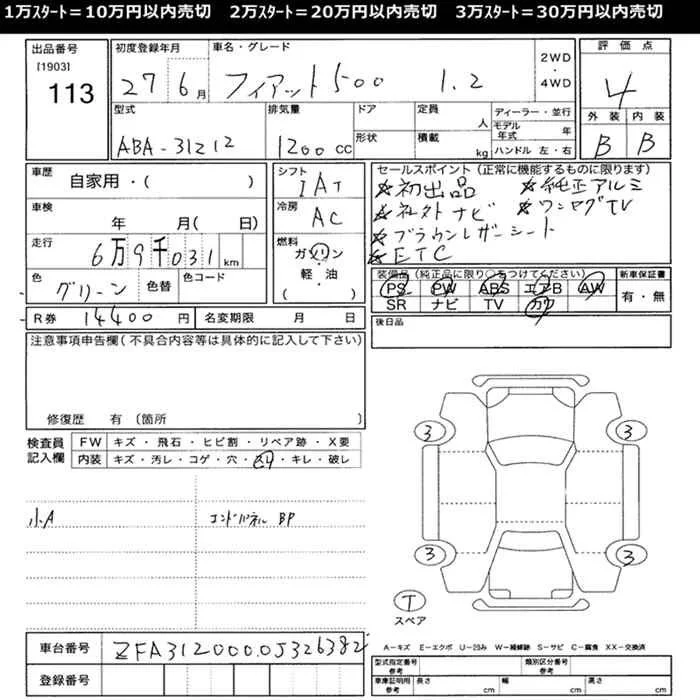 1万ｽﾀｰﾄ＝10万円以内売切　2万ｽﾀｰﾄ＝20万円以内売切　3万ｽﾀｰﾄ＝30万円以内売切
出品番号 初度登録年月 車名・グレード 2WD ・ 4WD 評価点
[1903]
113 27 6月 フィアット500 1.2 4
型式 排気量 ドア 定員 人 ディーラー・並行 外装 内装
ABA-31212 1200 cc 形状 積載 kg モデル年式 年 B B
ハンドル 左・右
車歴 自家用・( ) シフト IAT セールスポイント（正常に機能するものに限ります）
☆初出品 ☆純正アルミ
車検 年 月( 日) 冷房 AC ☆社外ナビ ☆ワンセグTV
走行 6万9千031km 燃料 ガソリン・軽・油・( ) ☆ブラウンレザーシート
☆ETC
色 グリーン 色替 色コード
装備品（純正品に限り○をつけてください） 新車保証書
PS PW ABS エアB AW 有・無
SR ナビ TV カワ
R券 14400円 名変期限 月 日 後日品
注意事項申告欄（不具合内容等は具体的に記入して下さい）
修復歴 有（箇所 ）
検査員記入欄 FW キズ・飛石・ヒビ割・リペア跡・X要
内装 キズ・汚レ・コゲ・穴・スレ・キレ・破レ
3 3
小A エンドパネル BP
3 3
T
スペア
車台番号 ZFA3120000J326382
A－キズ E－エクボ U－凹み W－補修跡 S－サビ C－腐食 XX－交換済
登録番号 型式指定番号 参考 類別区分番号 参考
車庫証明用 参考 長さ cm 幅 cm 高さ cm